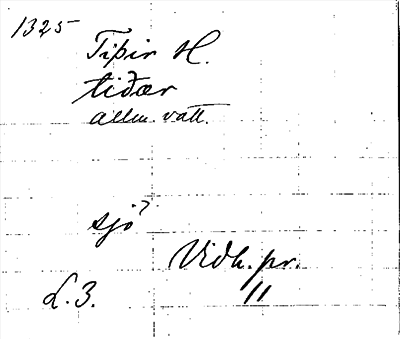 1325
Tiþir H.
tiðær
allm. vatt.
sjö?
Vidh. pr.
L. 3. "